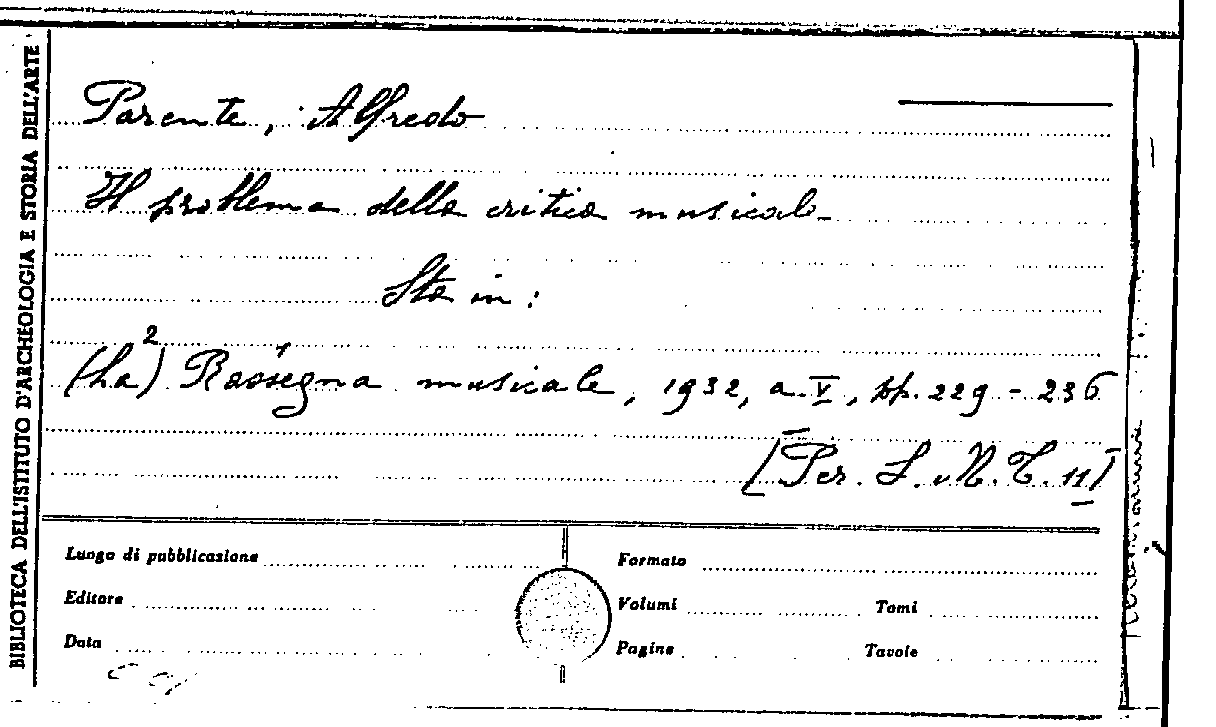 BIBLIOTECA DELL'ISTITUTO D'ARCHEOLOGIA E STORIA DELL'ARTE
Parente, Alfredo
Il problema della critica musicale
Sta in:
(La)² Rassegna musicale, 1932, a. V, pp. 229-236
[Per. S. M. T. 11]
Luogo di pubblicazione
Formato
Editore
Volumi
Tomi
Data
Pagine
Tavole